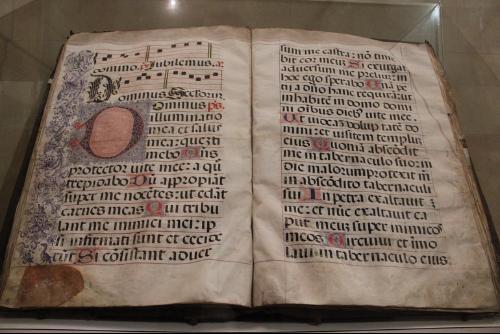 domino. Jubilemus.
Dominus
ominus ps.
illuminatio
mea et salus
mea: quem ti
mebo Dñs
protector vite mee: a quo
trepidabo Dũ apropiãt
super me nocẽtes: ut edãt
carnes meas Qui tribu
lant me inimici mei: ip
si infirmati sunt et cecide
runt Si consistant adver
sum me castra: nõ time
bit cor meuz Si exurgat
adversum me preliuz: in
hoc ego sperabo Unã pe
tii a dño hanc requirã: ut
inhabitẽ in domo domi
ni oĩbus dieb' vite mee.
Ut videã voluptatẽ do
mini: et visitem templuz
eius Quoniã abscõdit
me in tabernaculo suo: in
die malorum protexit me
in abscõdito tabernaculi
sui In petra exaltavit
me: et nũc exaltavit ca
put meuz super inimicos
meos Circuivi et imo
lavi in tabernaculo eius